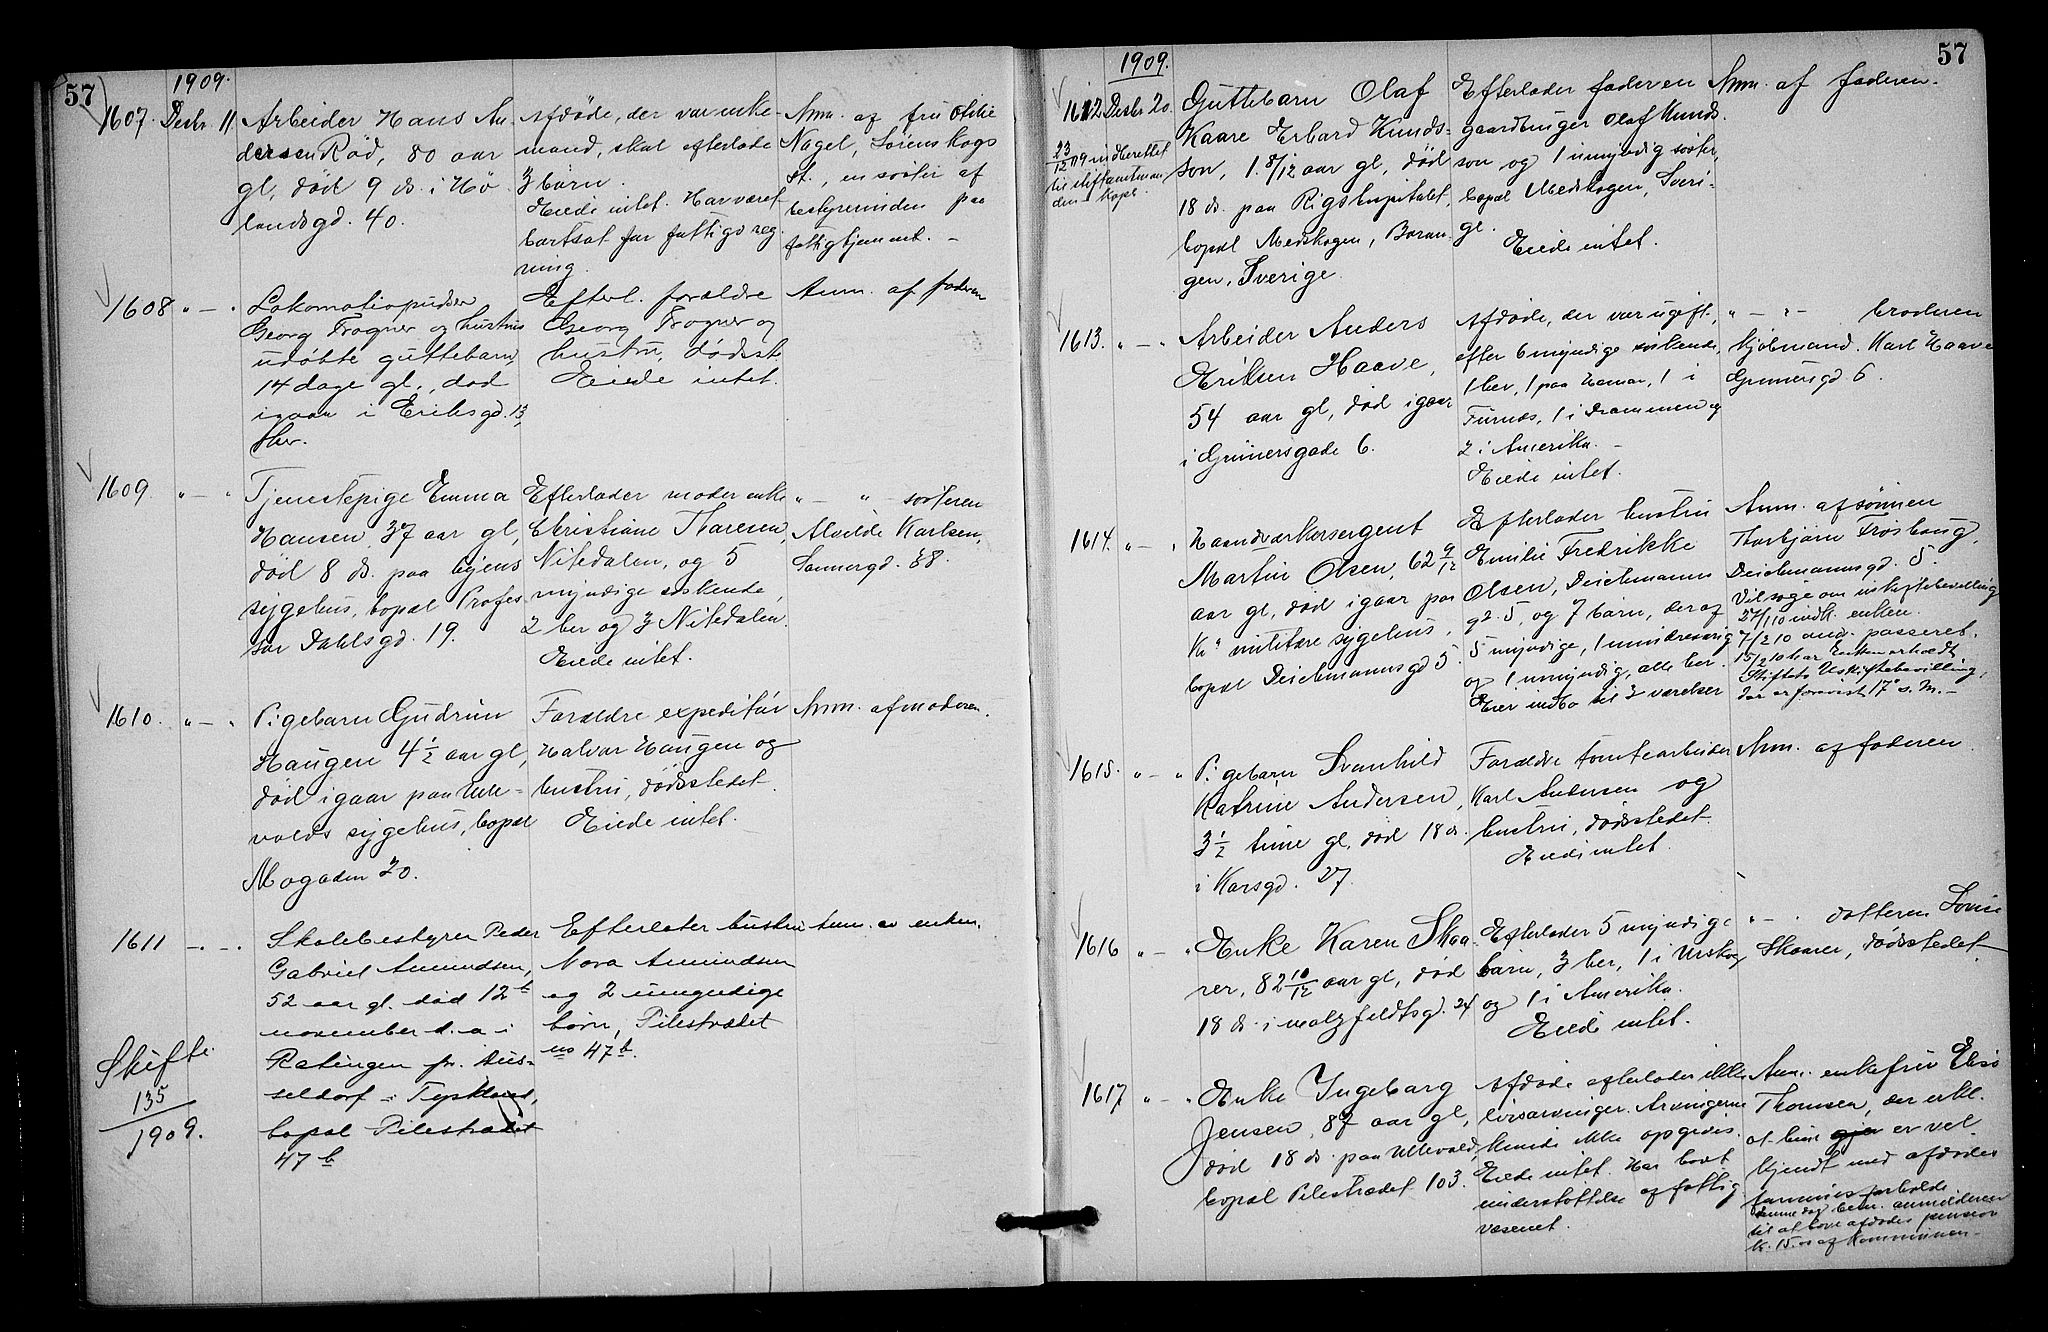 57
1909.
1607. Decbr. 11.
Arbeider Hans An-
dersen Rød, 80 aar
gl, død 9 ds. i Hø-
landsgd. 40.
Afdøde, der var enke-
mand, skal efterlade
3 børn.
Eiede intet. Har været
bortsat for fattigvæs
ning.
Anm. af fru Otilie
Nagel, Sørenskogs
St., en søster af
bestyrerinden paa
fattighjemmet. –
1608 " — "
Lokomotivpudser
Georg Frogner og hustrus
udøbte guttebarn,
14 dage gl., død
igaar i Eriksgd. 13,
her.
Efterl. forældre
Georg Frogner og
hustru, dødsst.
Eiede intet.
Anm. af faderen
1609. " — "
Tjenestepige Emma
Hansen, 37 aar gl,
død 8 ds. paa byens
sygehus, bopæl Profes
sor Dahlsgd. 19.
Efterlader moder enke
Christiane Thoresen,
Nitedalen, og 5
myndige søskende,
2 her og 3 Nitedalen.
Eiede intet.
" — " søsteren
Alvilde Karlsen,
Sannergd. 38.
1610. " — "
Pigebarn Gudrun
Haugen 4 1/2 aar gl,
død igaar paa Ulle-
volds sygehus, bopæl
Mogaden 20.
Forældre expeditør
Halvor Haugen og
hustru, dødsstedet.
Eiede intet.
Anm. af moderen.
1611 — " —
Skifte
135
1909.
Skolebestyrer Peder
Gabriel Amundsen,
52 aar gl. død 12te
november d. a. i
Ratingen pr. Dus-
seldorf i Tyskland,
bopæl Pilestrædet
47 b
Efterlater hustru
Nora Amundsen
og 2 umyndige
børn, Pilestrædet
no 47 b.
Anm. av enken.
57
1909.
1612 Decbr. 20.
23/12 09 indberettet
til stiftamtman
den i Kopb.
Guttebarn Olaf
Kaare Erhard Knuds-
son, 1 8/12 aar gl, død
18 ds. paa Rigshospitalet,
bopæl Medskogen, Boran-
gen, Sverige.
Efterlader faderen
gaardbruger Olaf Knuds
son og 1 umyndig søster,
bopæl Medskogen, Sveri-
ge.
Eiede intet.
Anm. af faderen.
1613. " — "
Arbeider Anders
Eriksen Haave,
54 aar gl, død igaar
i Grünersgade 6.
Afdøde, der var ugift,
efter 6 myndige søskende,
1 her, 1 paa Hamar, 1 i
Furnæs, 1 i Drammen og
2 i Amerika. –
Eiede intet.
" — " – broderen
kjøbmand Karl Haave
Grünersgd 6.
1614. " — "
Haandværkersergent
Martin Olsen, 62 9/12
aar gl, død igaar paa
Kra militære sygehus,
bopæl Deichmannsgd 5.
Efterlader hustru
Emilie Fredrikke
Olsen, Deichmanns
gd. 5, og 7 børn, deraf
5 myndige, 1 mindreaarig
og 1 umyndig, alle her.
Eier indbo til 3 værelser
Anm. af sønnen
Thorbjørn Frøshaug,
Deichmannsgd. 5.
Vil søge om uskiftebevilling
27/1 10 indk. enken.
7/2 10 and. passeret.
15/2 10 har Enken erholdt
Stiftets Uskiftebevilling,
der er forevist 17 s. M. –
1615. " — "
Pigebarn Svanhild
Katrine Andersen,
3 1/2 time gl, død 18 ds.
i Korsgd. 27.
Forældre tomtearbeider
Karl Andersen og
hustru, dødsstedet.
Eiede intet.
Anm. af faderen
1616 " — "
Enke Karen Skaa-
rer, 82 10/12 aar gl, død
18 ds. i Møllfeldtsgd. 24
Efterlader 5 myndige
børn, 3 her, 1 i Urskog,
og 1 i Amerika.
Eiede intet.
" — " datteren Lovise
Skaarer, dødsstedet.
1617 " — "
Enke Ingeborg
Jensen, 87 aar gl,
død 18 ds. paa Ullevold,
bopæl Pilestrædet 103.
Afdøde efterlader ikke
livsarvinger. Arvingerne
kunde ikke opgives.
Eiede intet. Har havt
understøttelse af fattig
væsenet.
Anm. enkefru Elise
Thomsen, der erkl.
at hun er vel
kjendt med afdødes
familiesforholde.
denne dag bem. anmelderen
til at hæve afdødes pension
k. 15.00 af Kommunen. –